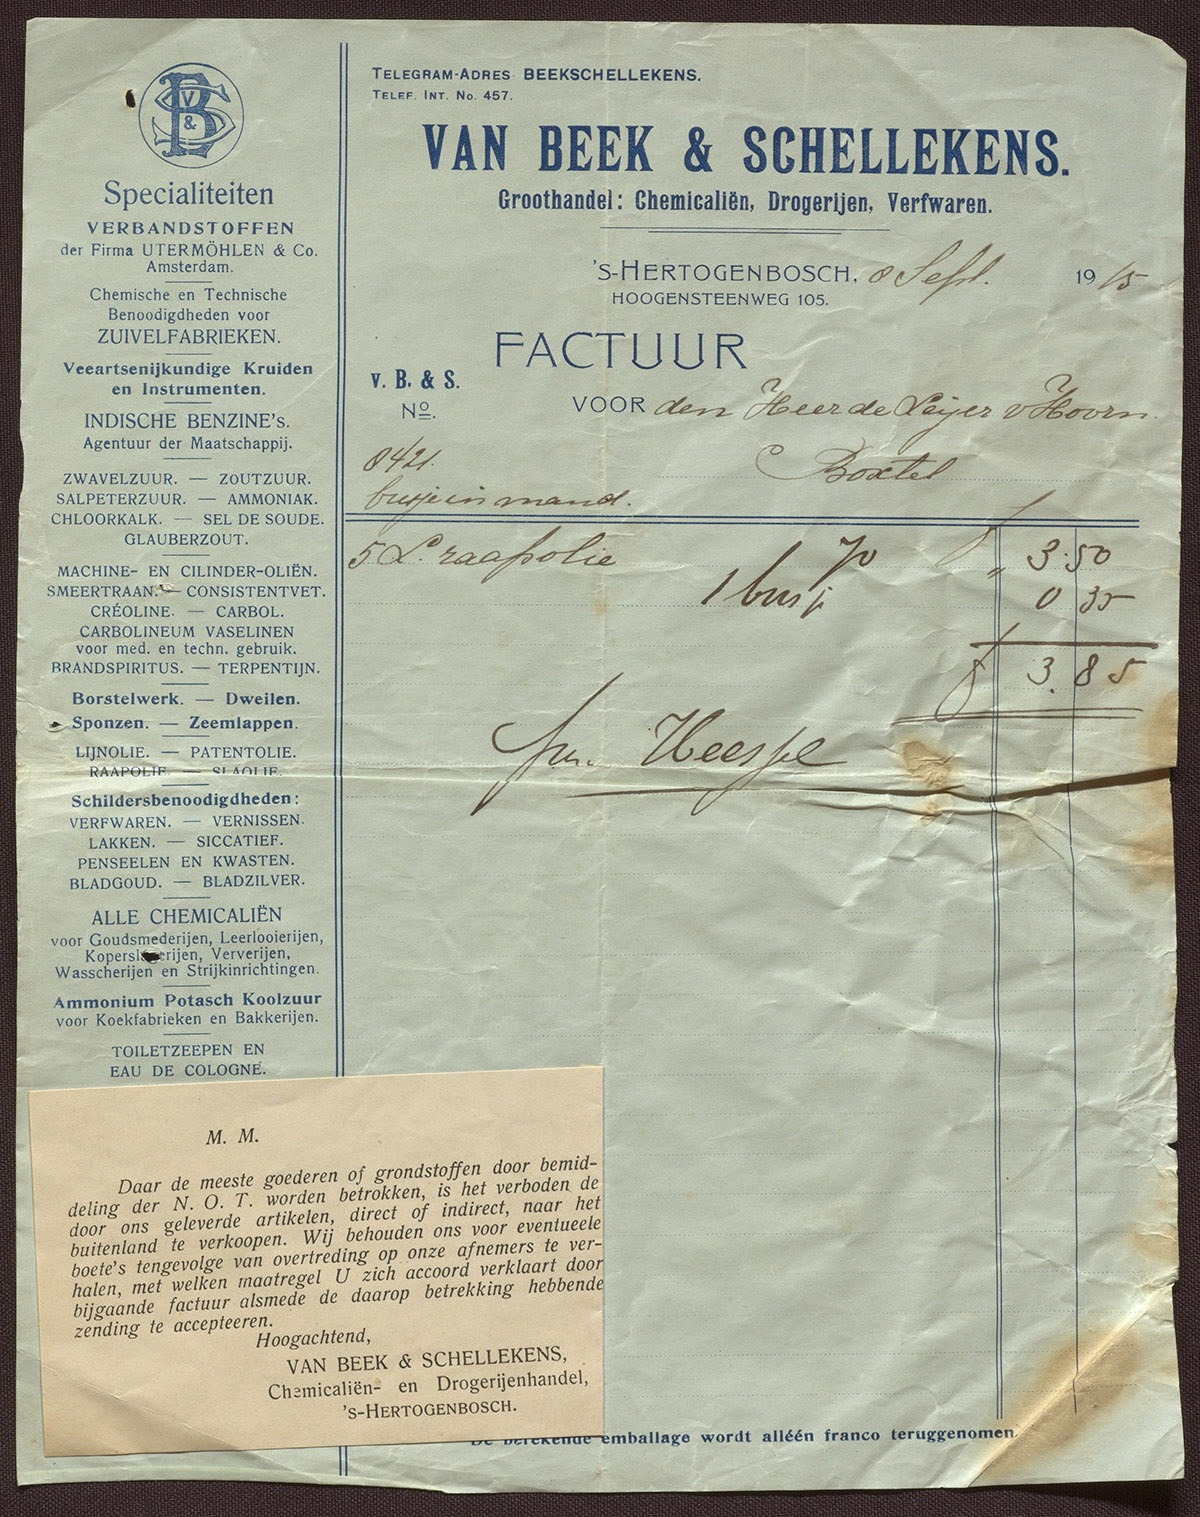 TELEGRAM-ADRES BEEKSCHELLEKENS.
TELEF. INT. No. 457.
VAN BEEK & SCHELLEKENS.
Groothandel: Chemicaliën, Drogerijen, Verfwaren.
'S-HERTOGENBOSCH, 8 Sept. 1915
HOOGENSTEENWEG 105.
FACTUUR
V. B. & S.
No.
VOOR den Heer de Leijer v Hoorn
8421.
Boxtel
busje in mand.
5 L. raapolie 70 f 3.50
1 busje " 0 35
f 3.85
V B S &
Specialiteiten
VERBANDSTOFFEN
der Firma UTERMÖHLEN & Co.
Amsterdam.
Chemische en Technische
Benoodigdheden voor
ZUIVELFABRIEKEN.
Veeartsenijkundige Kruiden
en Instrumenten.
INDISCHE BENZINE's.
Agentuur der Maatschappij.
ZWAVELZUUR. — ZOUTZUUR.
SALPETERZUUR. — AMMONIAK.
CHLOORKALK. — SEL DE SOUDE.
GLAUBERZOUT.
MACHINE- EN CILINDER-OLIËN.
SMEERTRAAN. — CONSISTENTVET.
CRÉOLINE. — CARBOL.
CARBOLINEUM VASELINEN
voor med. en techn. gebruik.
BRANDSPIRITUS. — TERPENTIJN.
Borstelwerk. — Dweilen.
Sponzen. — Zeemlappen.
LIJNOLIE. — PATENTOLIE.
RAAPOLIE — SLAOLIE.
Schildersbenoodigdheden:
VERFWAREN. — VERNISSEN.
LAKKEN. — SICCATIEF.
PENSEELEN EN KWASTEN.
BLADGOUD. — BLADZILVER.
ALLE CHEMICALIËN
voor Goudsmederijen, Leerlooierijen,
Koperslagerijen, Ververijen,
Wasscherijen en Strijkinrichtingen.
Ammonium Potasch Koolzuur
voor Koekfabrieken en Bakkerijen.
TOILETZEEPEN EN
EAU DE COLOGNE.
M. M.
Daar de meeste goederen of grondstoffen door bemid-
deling der N. O. T. worden betrokken, is het verboden de
door ons geleverde artikelen, direct of indirect, naar het
buitenland te verkoopen. Wij behouden ons voor eventueele
boete's tengevolge van overtreding op onze afnemers te ver-
halen, met welken maatregel U zich accoord verklaart door
bijgaande factuur alsmede de daarop betrekking hebbende
zending te accepteeren.
Hoogachtend,
VAN BEEK & SCHELLEKENS,
Chemicaliën- en Drogerijenhandel,
'S-HERTOGENBOSCH.
De berekende emballage wordt alléén franco teruggenomen.